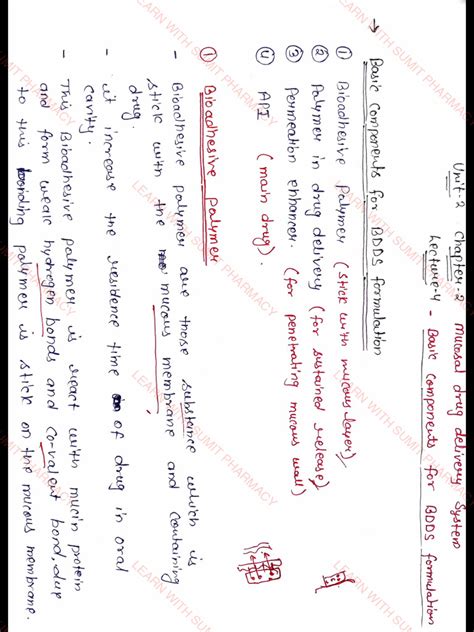 Unit-2 Chapter-2 Mucosal drug delivery System
Lecture-4 - Basic components for BDDS formulation
→ Basic components for BDDS formulation
① Bioadhesive polymer (stick with mucous layer)
② Polymer in drug delivery (for sustained release)
③ Permeation enhancer. (for penetrating mucous wall)
④ API (main drug).
① Bioadhesive polymer
- Bioadhesive polymer are those substance which is
stick with the mucous membrane and containing
drug.
- it increase the residence time of drug in oral
cavity.
- This Bioadhesive polymer is react with mucin protein
and form weak hydrogen bonds and co-valent bond, due
to this bonding polymer is stick on the mucous membrane.
LEARN WITH SUMIT PHARMACY
LEARN WITH SUMIT PHARMACY
LEARN WITH SUMIT PHARMACY
LEARN WITH SUMIT PHARMACY